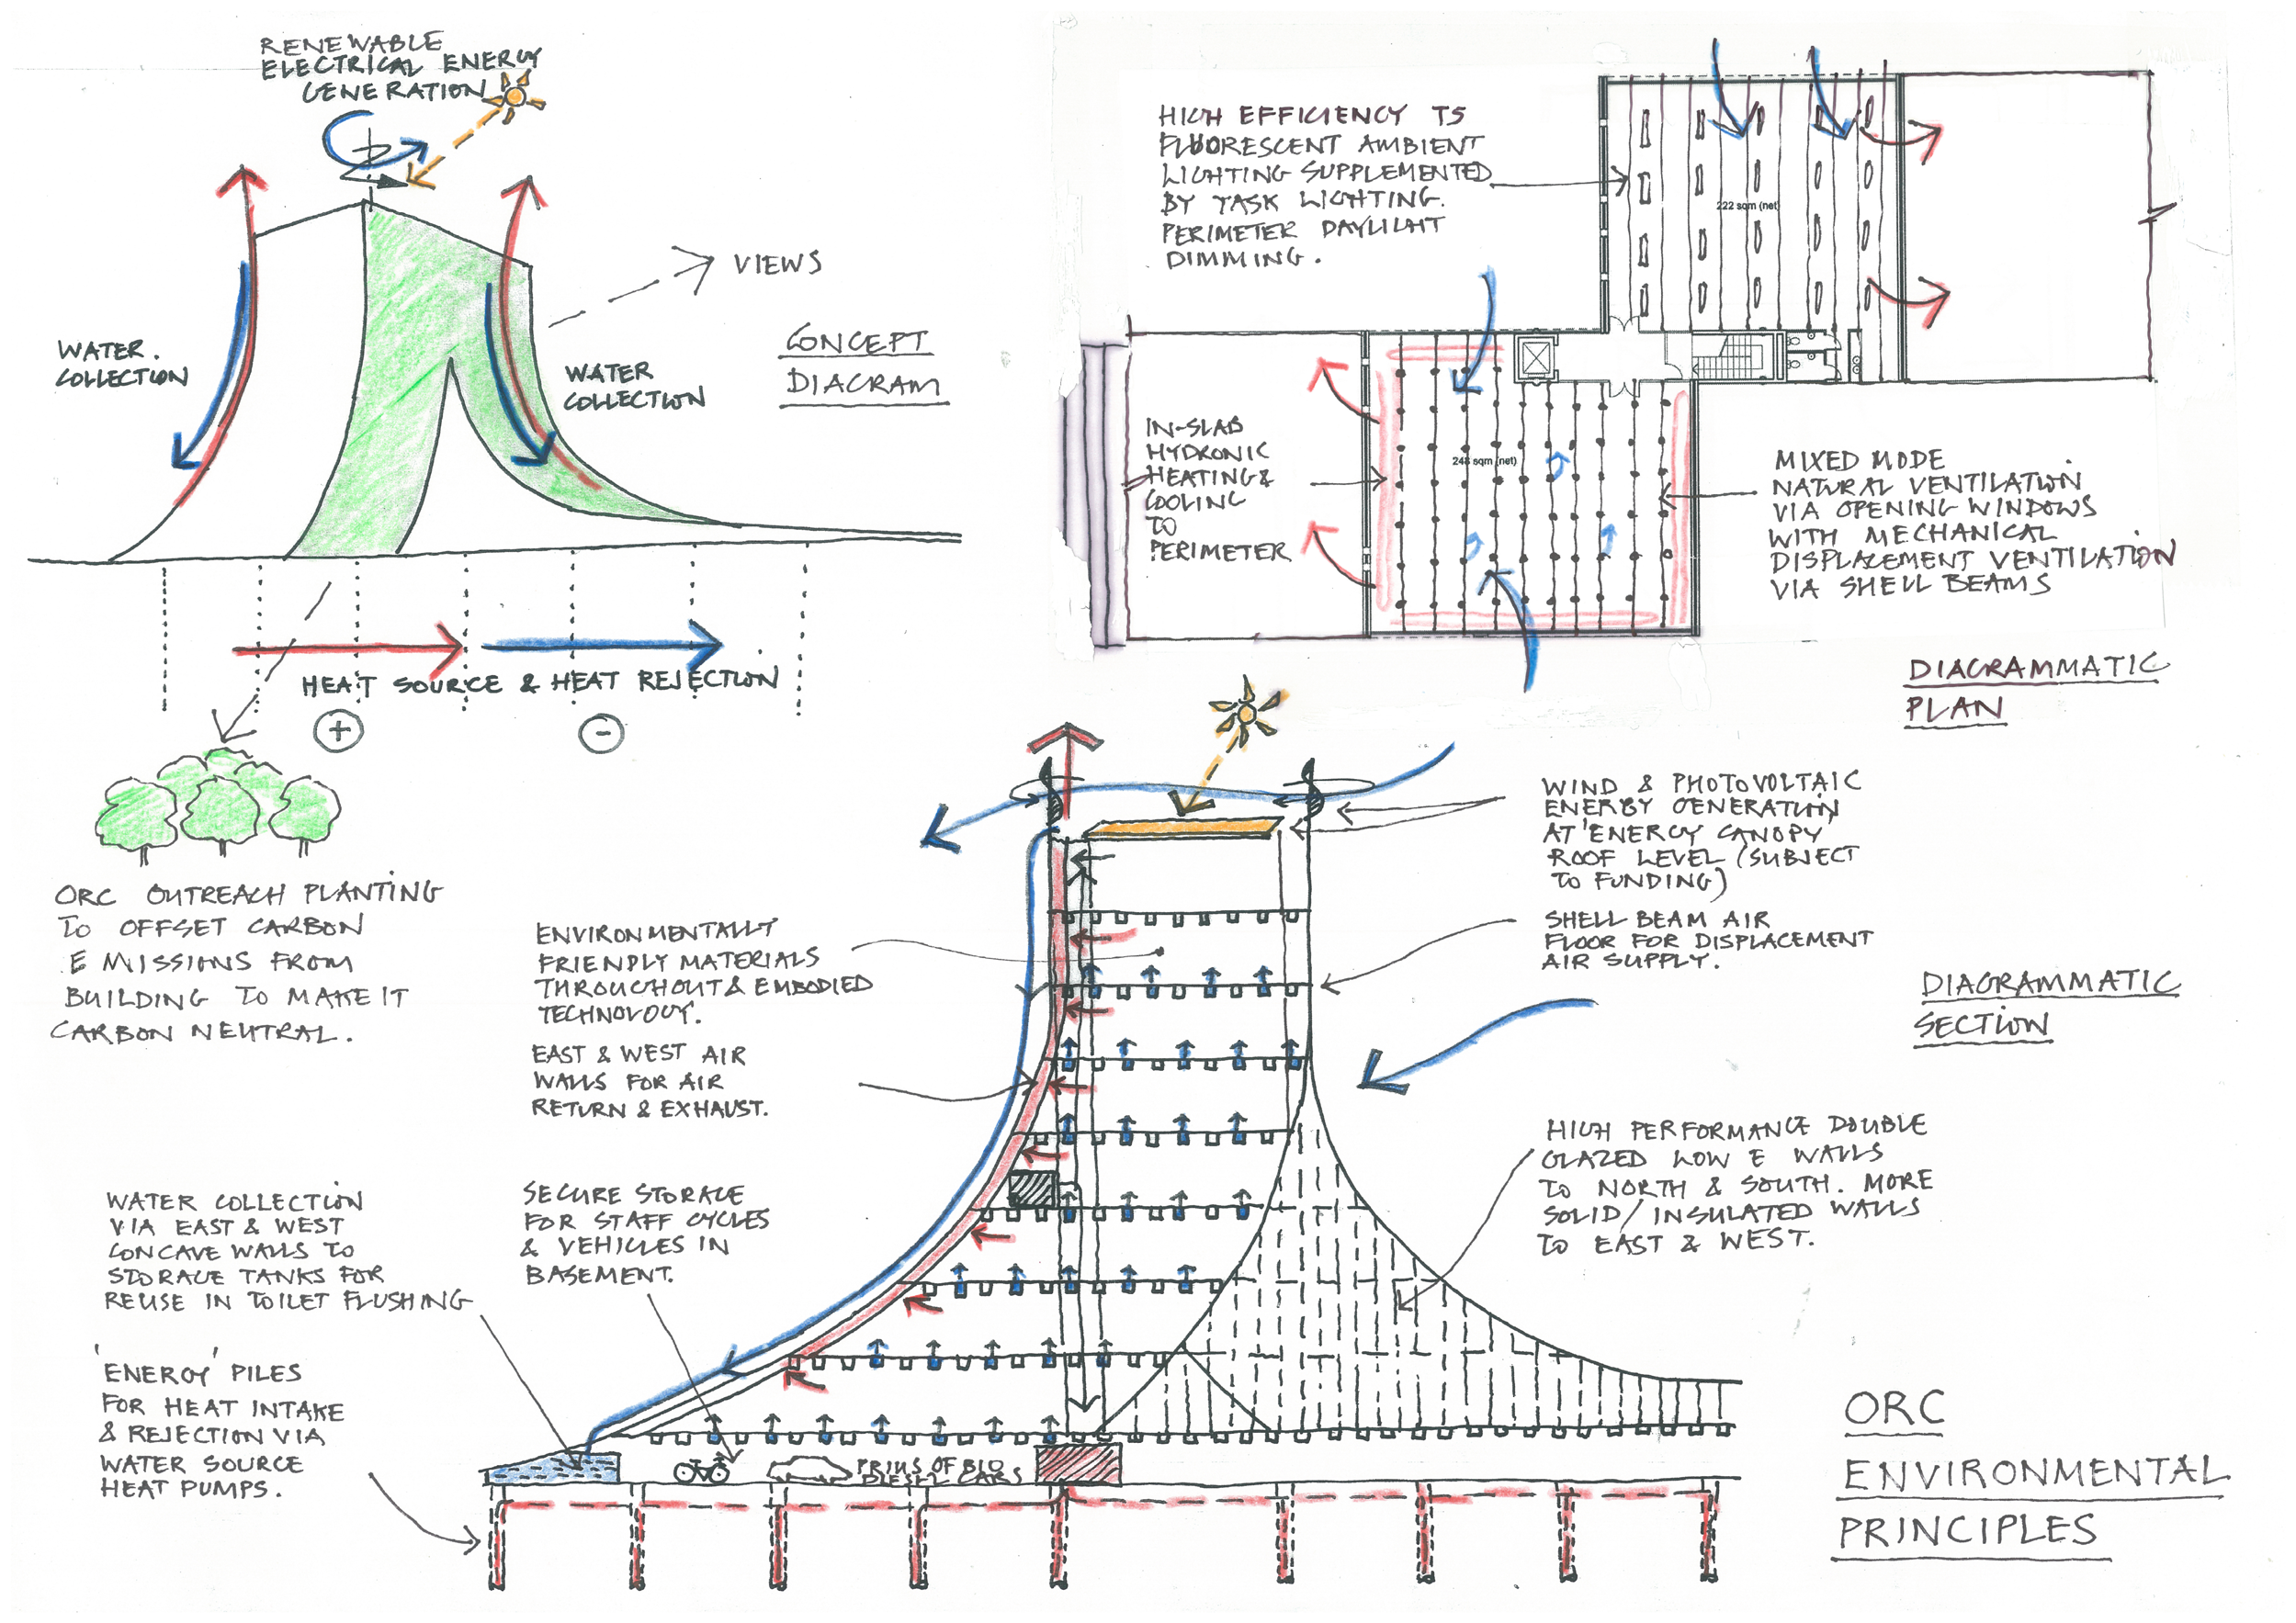 RENEWABLE
ELECTRICAL ENERGY
GENERATION
VIEWS
WATER.
COLLECTION
WATER
COLLECTION
CONCEPT
DIAGRAM
HEAT SOURCE & HEAT REJECTION
+
-
ORC OUTREACH PLANTING
TO OFFSET CARBON
EMISSIONS FROM
BUILDING TO MAKE IT
CARBON NEUTRAL.
HIGH EFFICIENCY T5
FLUORESCENT AMBIENT
LIGHTING SUPPLEMENTED
BY TASK LIGHTING.
PERIMETER DAYLIGHT
DIMMING.
222 sqm (net)
IN-SLAB
HYDRONIC
HEATING &
COOLING
TO
PERIMETER
248 sqm (net)
MIXED MODE
NATURAL VENTILATION
VIA OPENING WINDOWS
WITH MECHANICAL
DISPLACEMENT VENTILATION
VIA SHELL BEAMS
DIAGRAMMATIC
PLAN
WIND & PHOTOVOLTAIC
ENERGY GENERATION
AT 'ENERGY CANOPY'
ROOF LEVEL (SUBJECT
TO FUNDING)
SHELL BEAM AIR
FLOOR FOR DISPLACEMENT
AIR SUPPLY.
DIAGRAMMATIC
SECTION
ENVIRONMENTALLY
FRIENDLY MATERIALS
THROUGHOUT & EMBODIED
TECHNOLOGY.
EAST & WEST AIR
WALLS FOR AIR
RETURN & EXHAUST.
HIGH PERFORMANCE DOUBLE
GLAZED LOW E WALLS
TO NORTH & SOUTH. MORE
SOLID/INSULATED WALLS
TO EAST & WEST.
WATER COLLECTION
VIA EAST & WEST
CONCAVE WALLS TO
STORAGE TANKS FOR
REUSE IN TOILET FLUSHING
SECURE STORAGE
FOR STAFF CYCLES
& VEHICLES IN
BASEMENT.
'ENERGY' PILES
FOR HEAT INTAKE
& REJECTION VIA
WATER SOURCE
HEAT PUMPS.
PRIUS OF BIO
DIESEL CARS
ORC
ENVIRONMENTAL
PRINCIPLES